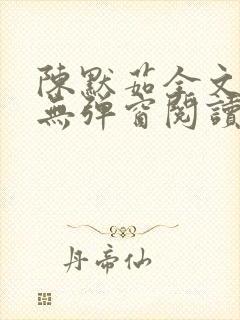 陳默茹全文
無彈窗閱讀
丹帝仙